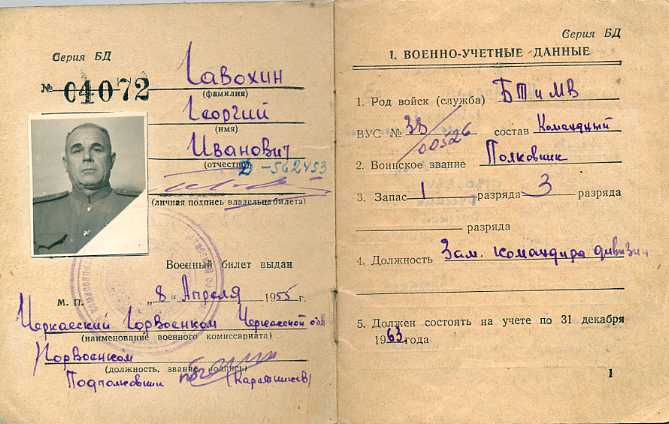 Серия БД
№ 04072
Гавохин
(фамилия)
Георгий
(имя)
Иванович
(отчество)
-562453
(личная подпись владельца билета)
Военный билет выдан
М. П. „8“ Апреля 1955 г.
Черкасский Горвоенком Черкасской обл
(наименование военного комиссариата)
Горвоенком
(должность, звание, подпись)
Подполковник
Серия БД
1. ВОЕННО-УЧЕТНЫЕ ДАННЫЕ
1. Род войск (служба) БТ и МВ
ВУС № 33 состав Командный
00326
2. Воинское звание Полковник
3. Запас 1 разряда 3 разряда
разряда
4. Должность Зам. командира дивизии
5. Должен состоять на учете по 31 декабря
1963 года
1